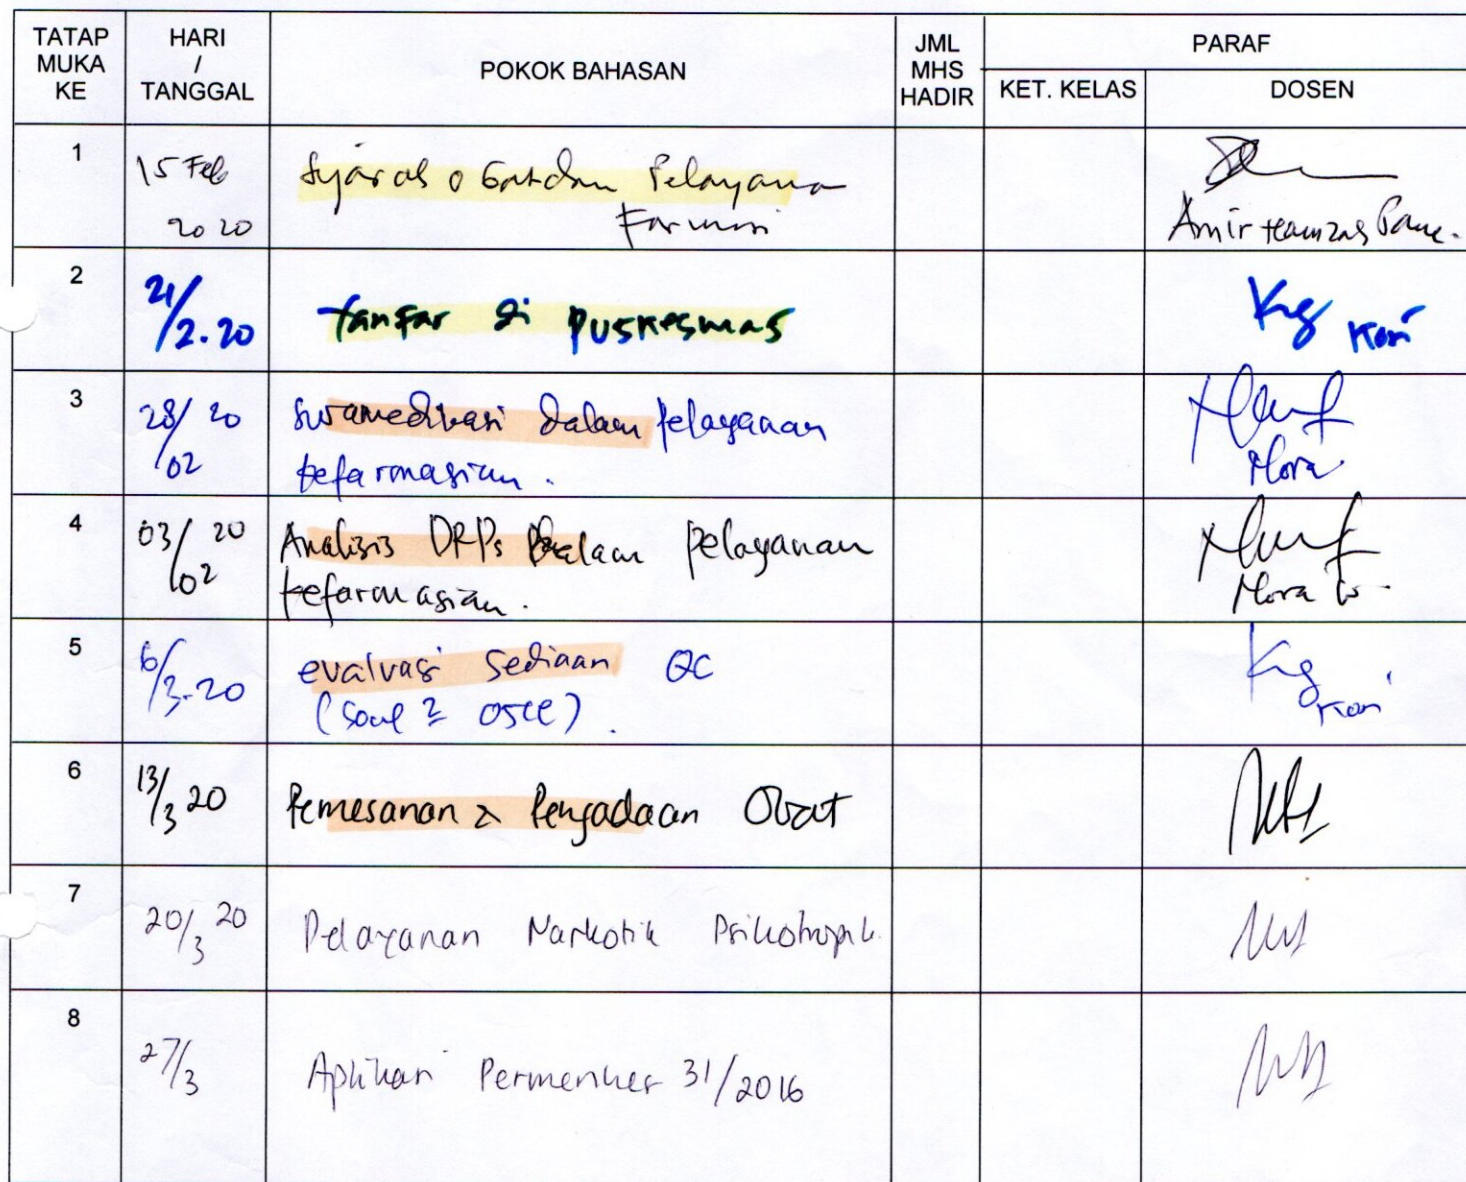 TATAP MUKA KE
HARI / TANGGAL
POKOK BAHASAN
JML MHS HADIR
PARAF
KET. KELAS
DOSEN
1
15 Feb 2020
Sejarah Obat dan Pelayanan
Farmasi
Amir Hamzah
2
21/2.20
Yanfar di Puskesmas
Kori
3
28/02 20
Swamedikasi dalam pelayanan
kefarmasian.
Nora
4
03/02 20
Analisis DRPs Dalam pelayanan
kefarmasian.
Nora
5
6/3-20
evaluasi Sediaan QC
(Soal2 OSCE).
Kori
6
13/3 20
Pemesanan & Pengadaan Obat
7
20/3 20
Pelayanan Narkotik Psikotropik.
8
27/3
Aplikasi Permenkes 31/2016